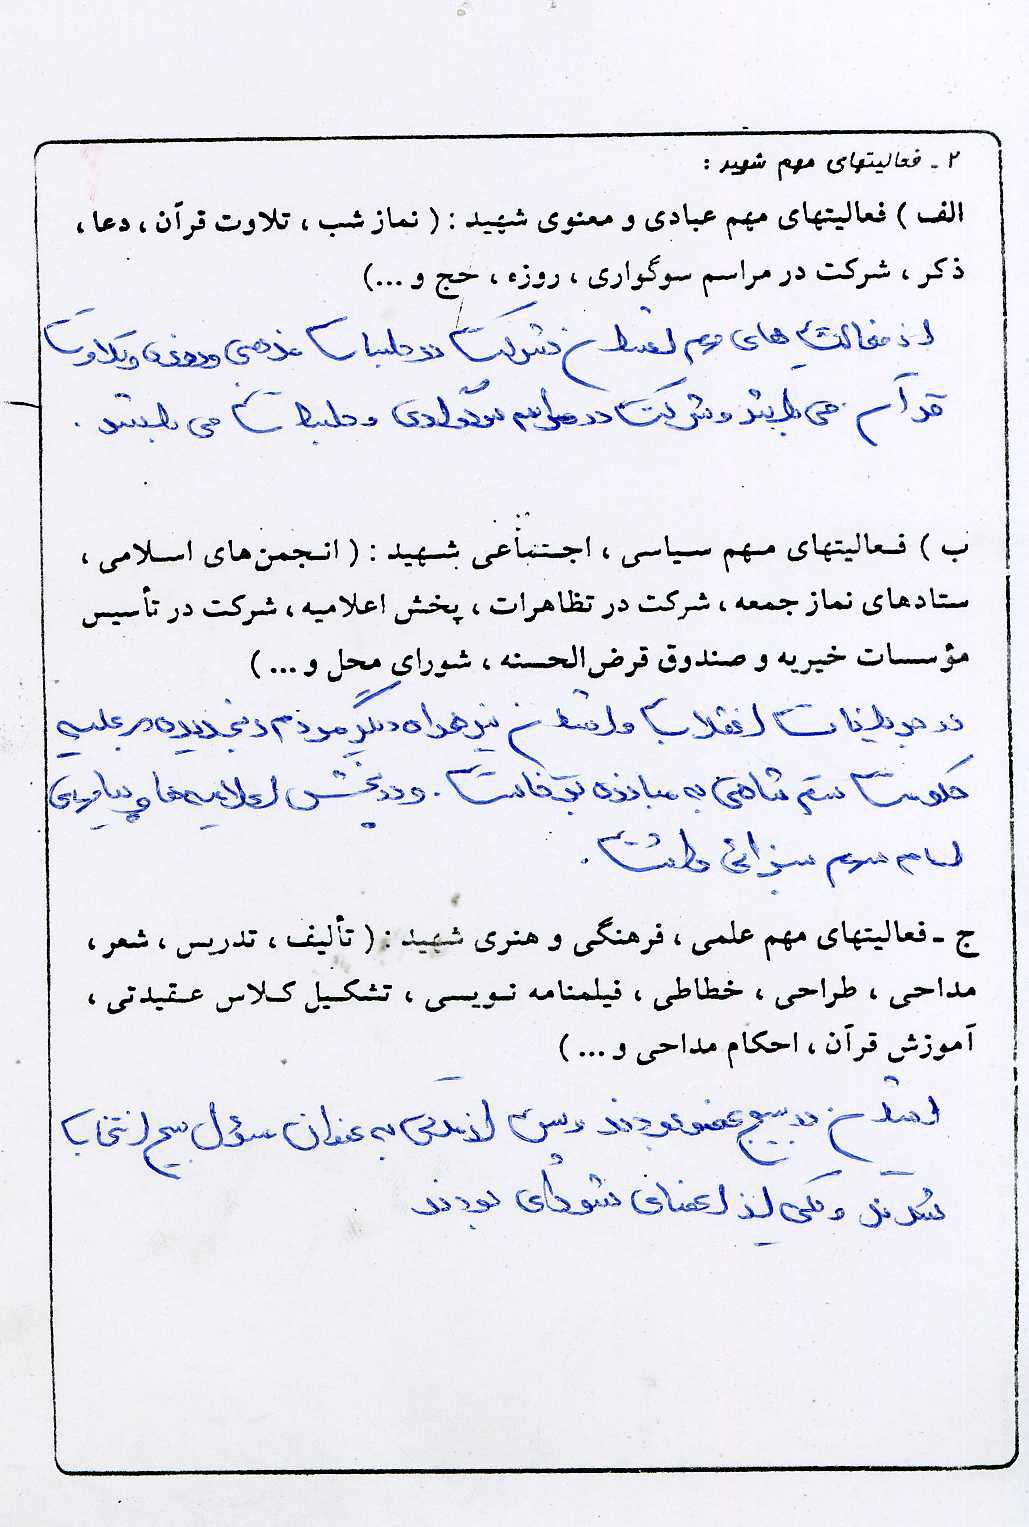 ۲ ـ فعالیتهای مهم شهید :
الف ) فعالیتهای مهم عبادی و معنوی شهید : ( نماز شب ، تلاوت قرآن ، دعا ،
ذکر ، شرکت در مراسم سوگواری ، روزه ، حج و ...)
از فعالیت های مهم ایشان شرکت در جلسات مذهبی و روزه و تلاوت
قرآن می باشد و شرکت در مراسم سوگواری و جلسات می باشد .
ب ) فعالیتهای مهم سیاسی ، اجتماعی شهید : ( انجمن‌های اسلامی ،
ستادهای نماز جمعه ، شرکت در تظاهرات ، پخش اعلامیه ، شرکت در تأسیس
مؤسسات خیریه و صندوق قرض‌الحسنه ، شورای محل و ... )
در جریانات انقلاب ایشان نیز همراه دیگر مردم رنجدیده بر علیه
حکومت ستم شاهی به مبارزه برخاست . و در پخش اعلامیه ها و پیامهای
امام سهم بسزائی داشت .
ج ـ فعالیتهای مهم علمی ، فرهنگی و هنری شهید : ( تألیف ، تدریس ، شعر ،
مداحی ، طراحی ، خطاطی ، فیلمنامه نویسی ، تشکیل کلاس عقیدتی ،
آموزش قرآن ، احکام مداحی و ... )
ایشان در بسیج عضو بودند و پس از مدتی به عنوان مسؤل بسیج انتخاب
شدند و یکی از اعضای شورای بودند